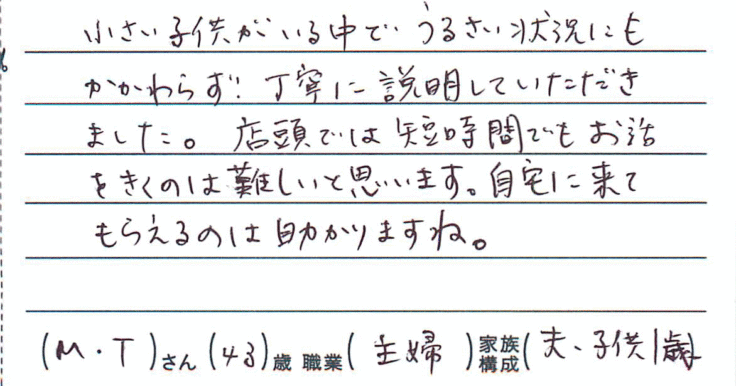 小さい子供がいる中で、うるさい状況にも
かかわらず!丁寧に説明していただき
ました。店頭では短時間でもお話
をきくのは難しいと思います。自宅に来て
もらえるのは助かりますね。
(M・T)さん(43)歳 職業(主婦)家族構成(夫、子供1歳)